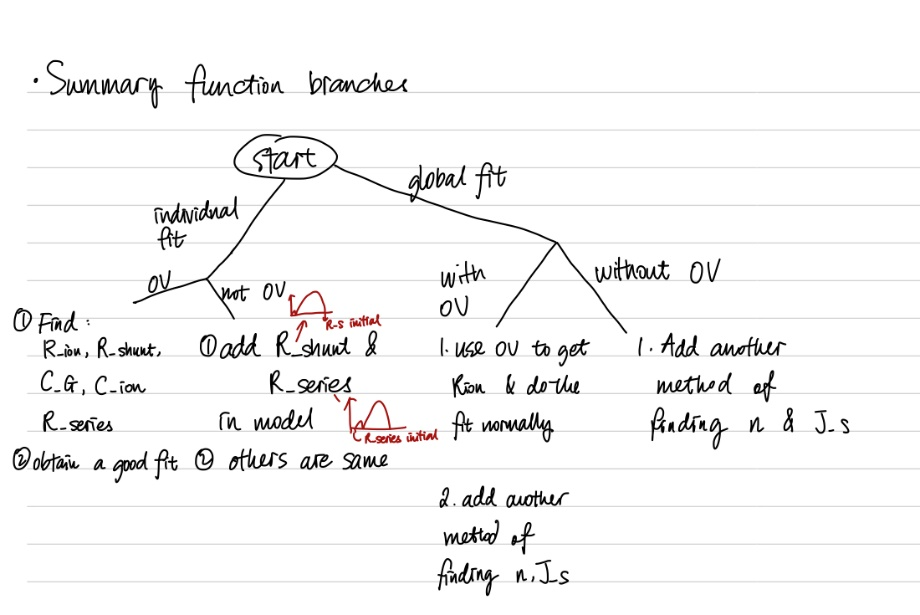 · Summary function branches
start
global fit
individual
fit
OV
not OV
with
OV
without OV
① Find :
R_ion, R_shunt,
C_G, C_ion
R_series
② obtain a good fit
R-s initial
① add R_shunt &
R_series
in model
R series initial
② others are same
1. use OV to get
Rion & do the
fit normally
2. add another
method of
finding n, J_s
1. Add another
method of
finding n & J_s